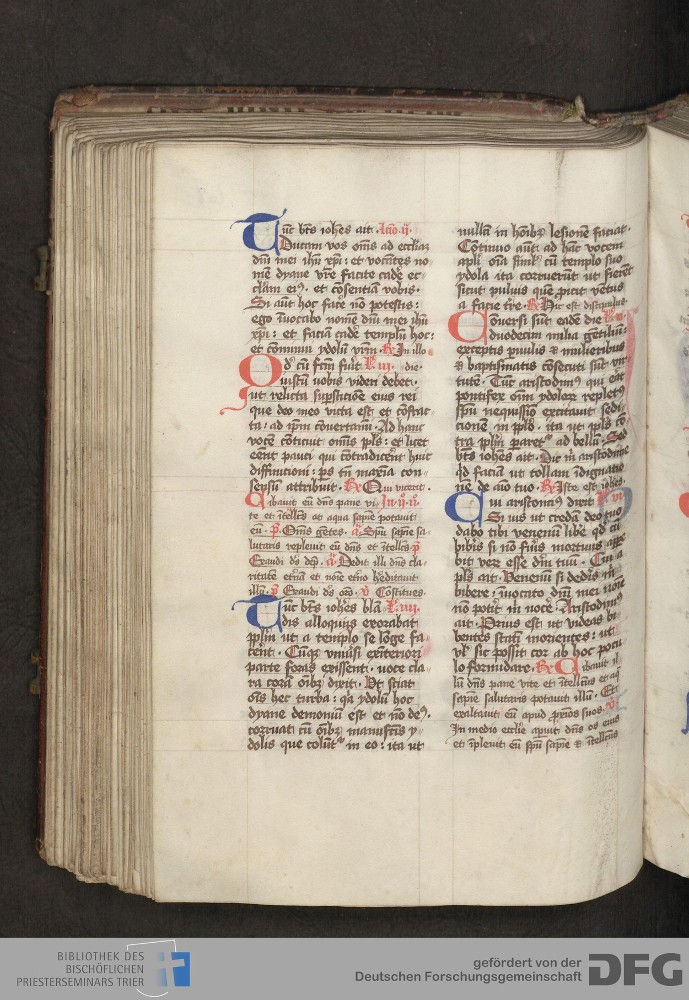 Tūc btūs ioh̄es ait · Lc̄o ·ij·
Ducam vos om̄s ad eccliaꝫ
dn̄i mei ih̄u xp̄i : et vocātes no
mē dyane vr̄e facite cadē ec
cl̄am eiꝰ · et cōsentiā vobis ·
Si aūt hoc facē nō potestis :
ego īvocabo nomē dn̄i mei ih̄u
xp̄i : et faciā cadē templū hoc :
et cōminui ydolū vr̄m · R̄ In illo
Od̄ cū fcm̄ fuit L·iii· die·
iustū vobis videri debet ·
ut relicta supsticiōne eius rei
que deo meo victa est et cōfrac
ta : ad ip̄m cōvertamī · Ad hanc
vocē cōticuit om̄is ppl̄s : et licet
eēnt pauci qui cōtradicēnt huic
diffinicioni : ps̄ tn̄ maxīa con
sensū attribuit · R̄ Qui vicerit ·
Cibavit eū dn̄s pane vi · In ·ij· n̄
te et ītellc̄s et aqua sapīe potavit
eū · p̄ · Om̄s gētes · a᷑ · Spū sapīe sa
lutaris replevit eū dn̄s et ītellcs p̄
Exaudi ds̄ dep̄ · a᷑ · Dedit illi dn̄s cla
ritatē et̄nā et nomē et̄no h̄editavit
illū · p̄ Exaudi ds̄ orō · v̄ Cōstitues
Tūc btūs ioh̄es bl̄a L·iiii·
dis alloquiis exorabat
ppl̄m ut a templo se lōge fa
cēnt · Cūqꝫ univ̄si exteriori
parte foras exissent · voce cla
ra corā oībꝫ dixit · Ut sciat
ois hec turba : qꝛ ydolū hoc
dyane demoniū est et nō deꝰ ·
corruat cū oībꝫ manufctis y
dolis que colūtꝛ in eo : ita ut
nullā in hoībꝫ lesionē faciat ·
Cōtinuo aūt ad hāc vocem
apl̄i oīa simul cū templo suo
ydola ita corruerūt ut fierēt
sicut pulvis quē ꝓicit vētus
a facie tr̄e · R̄ Hic est discipulus
Conversi sūt eadē die L·v·
duodecim milia gētiliū
exceptis pvulis ⁊ mulieribus
⁊ baptismatis cōsecuti sūt vir
tutē · Tūc aristodimꝰ qui eāt
pontifex oīm ydolorꝫ repletꝰ
spū nequissīo excitavit sedi
cionē in pplo · ita ut ppl̄s cō
tra ppl̄m paretꝛ ad bellū · Sed
bt̄s ioh̄es ait · Dic m̄ aristodime
qd̄ faciā ut tollam īdignatio
nē de aīo tuo · R̄ Iste est ioh̄es
Cui aristomꝰ dixit L·vi·
Si vis ut credā deo tuo
dabo tibi venenū libē qd̄ cū
bibis si nō fūis mortuus appe
bit verē esse dm̄ tuū · Cui a
pl̄s ait · Venenū si dedis m̄
bibere : īvocato dn̄i mei noīe
nō potit m̄ nocē · Aristodimꝰ
ait · Prius est ut videas bi
bentes statī morientes : ut
vl̄ sic possit cor ab hoc pocu
lo formidare · R̄ Cibavit il
lū dn̄s pane vite et ītellcūs et aq̄
sapīe salutaris potavit illū · Et
exaltavit eū apud ꝓxīos suos · v̄
In medio ecclīe apuit dn̄s os eius
et īplevit eū spū sapīe ⁊ ītellcūs
BIBLIOTHEK DES
BISCHÖFLICHEN
PRIESTERSEMINARS TRIER
gefördert von der
Deutschen Forschungsgemeinschaft DFG